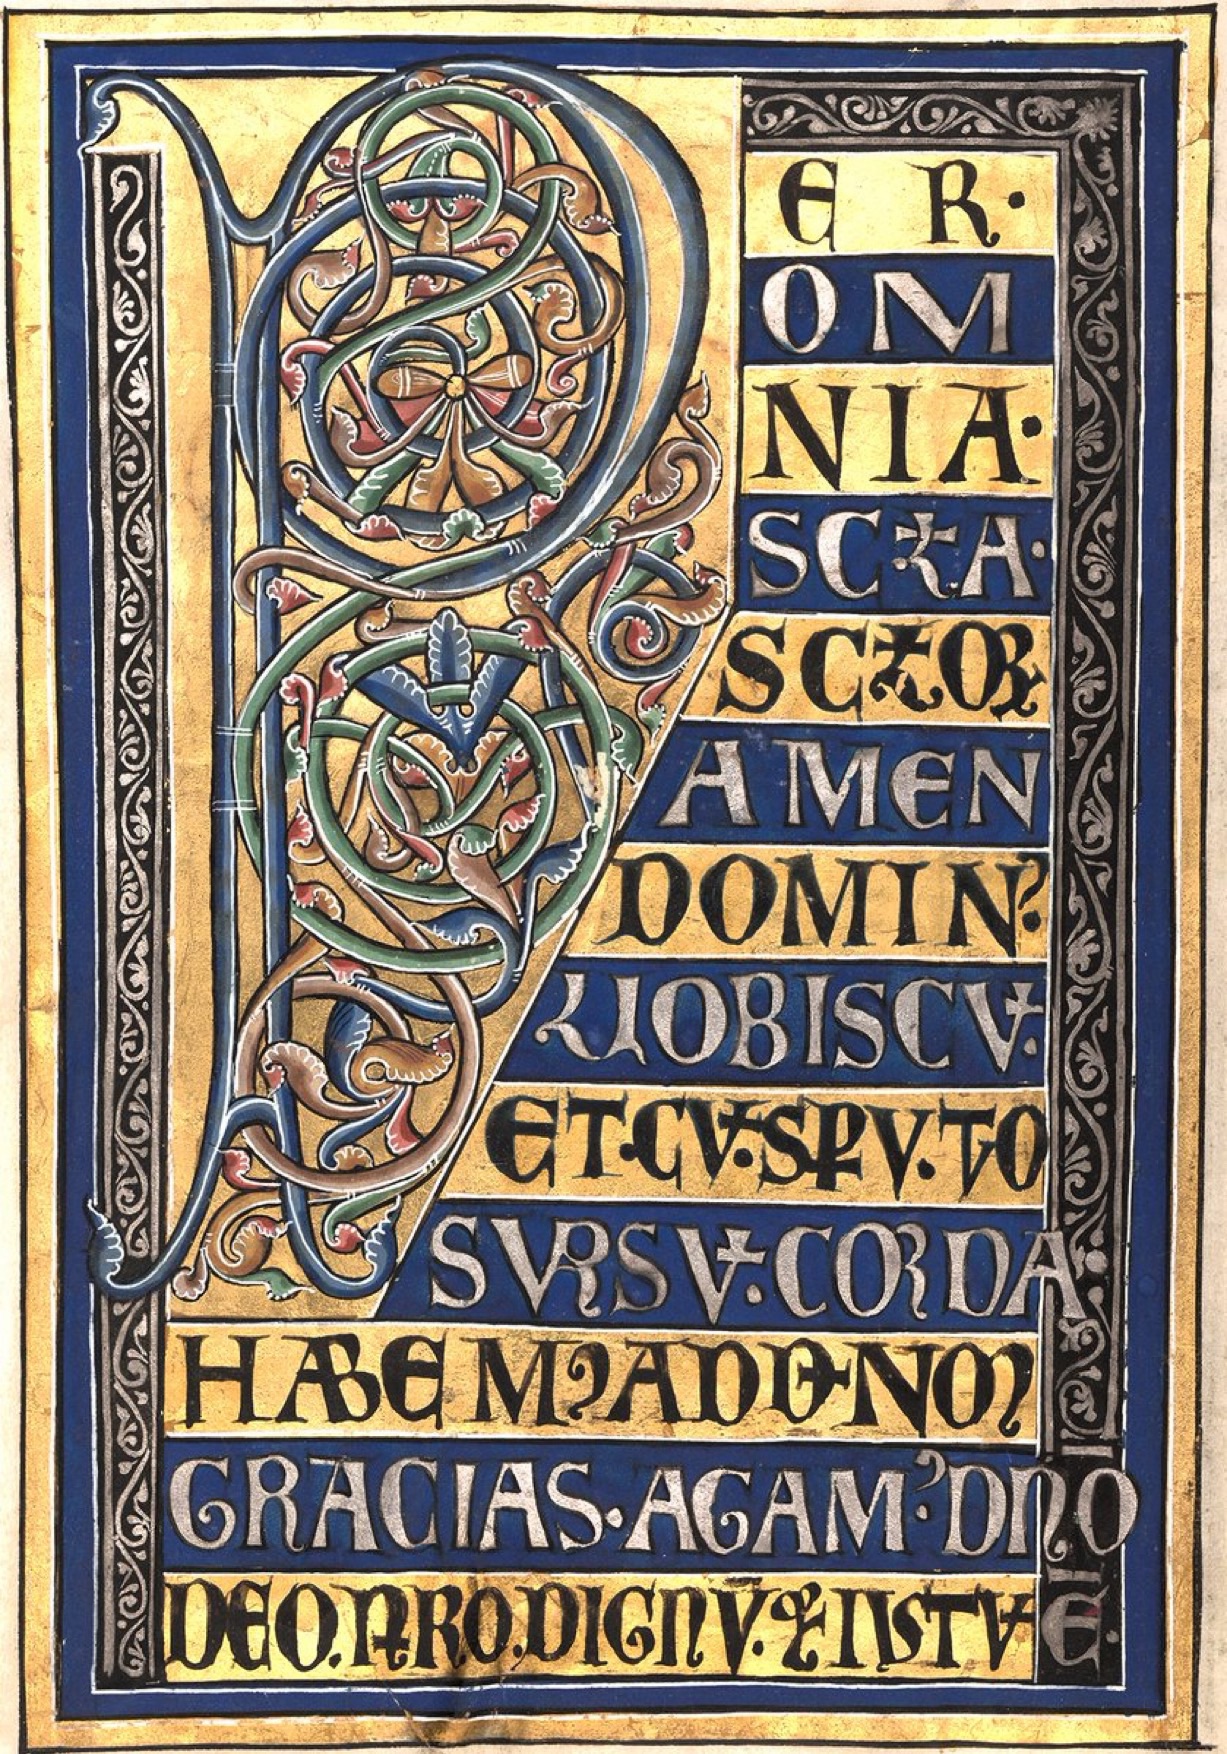 P ER·
OM
NIA·
SCLA·
SCLOR
AMEN
DOMIN᾿
UOBISCV̄·
ET·CV̄·SPV·TVO
SVRSV̄·CORDA
HABEM᾿AD DN̄M
GRACIAS·AGAM᾿DNO
DEO·NRO·DIGNV̄·& IVSTV̄ E·